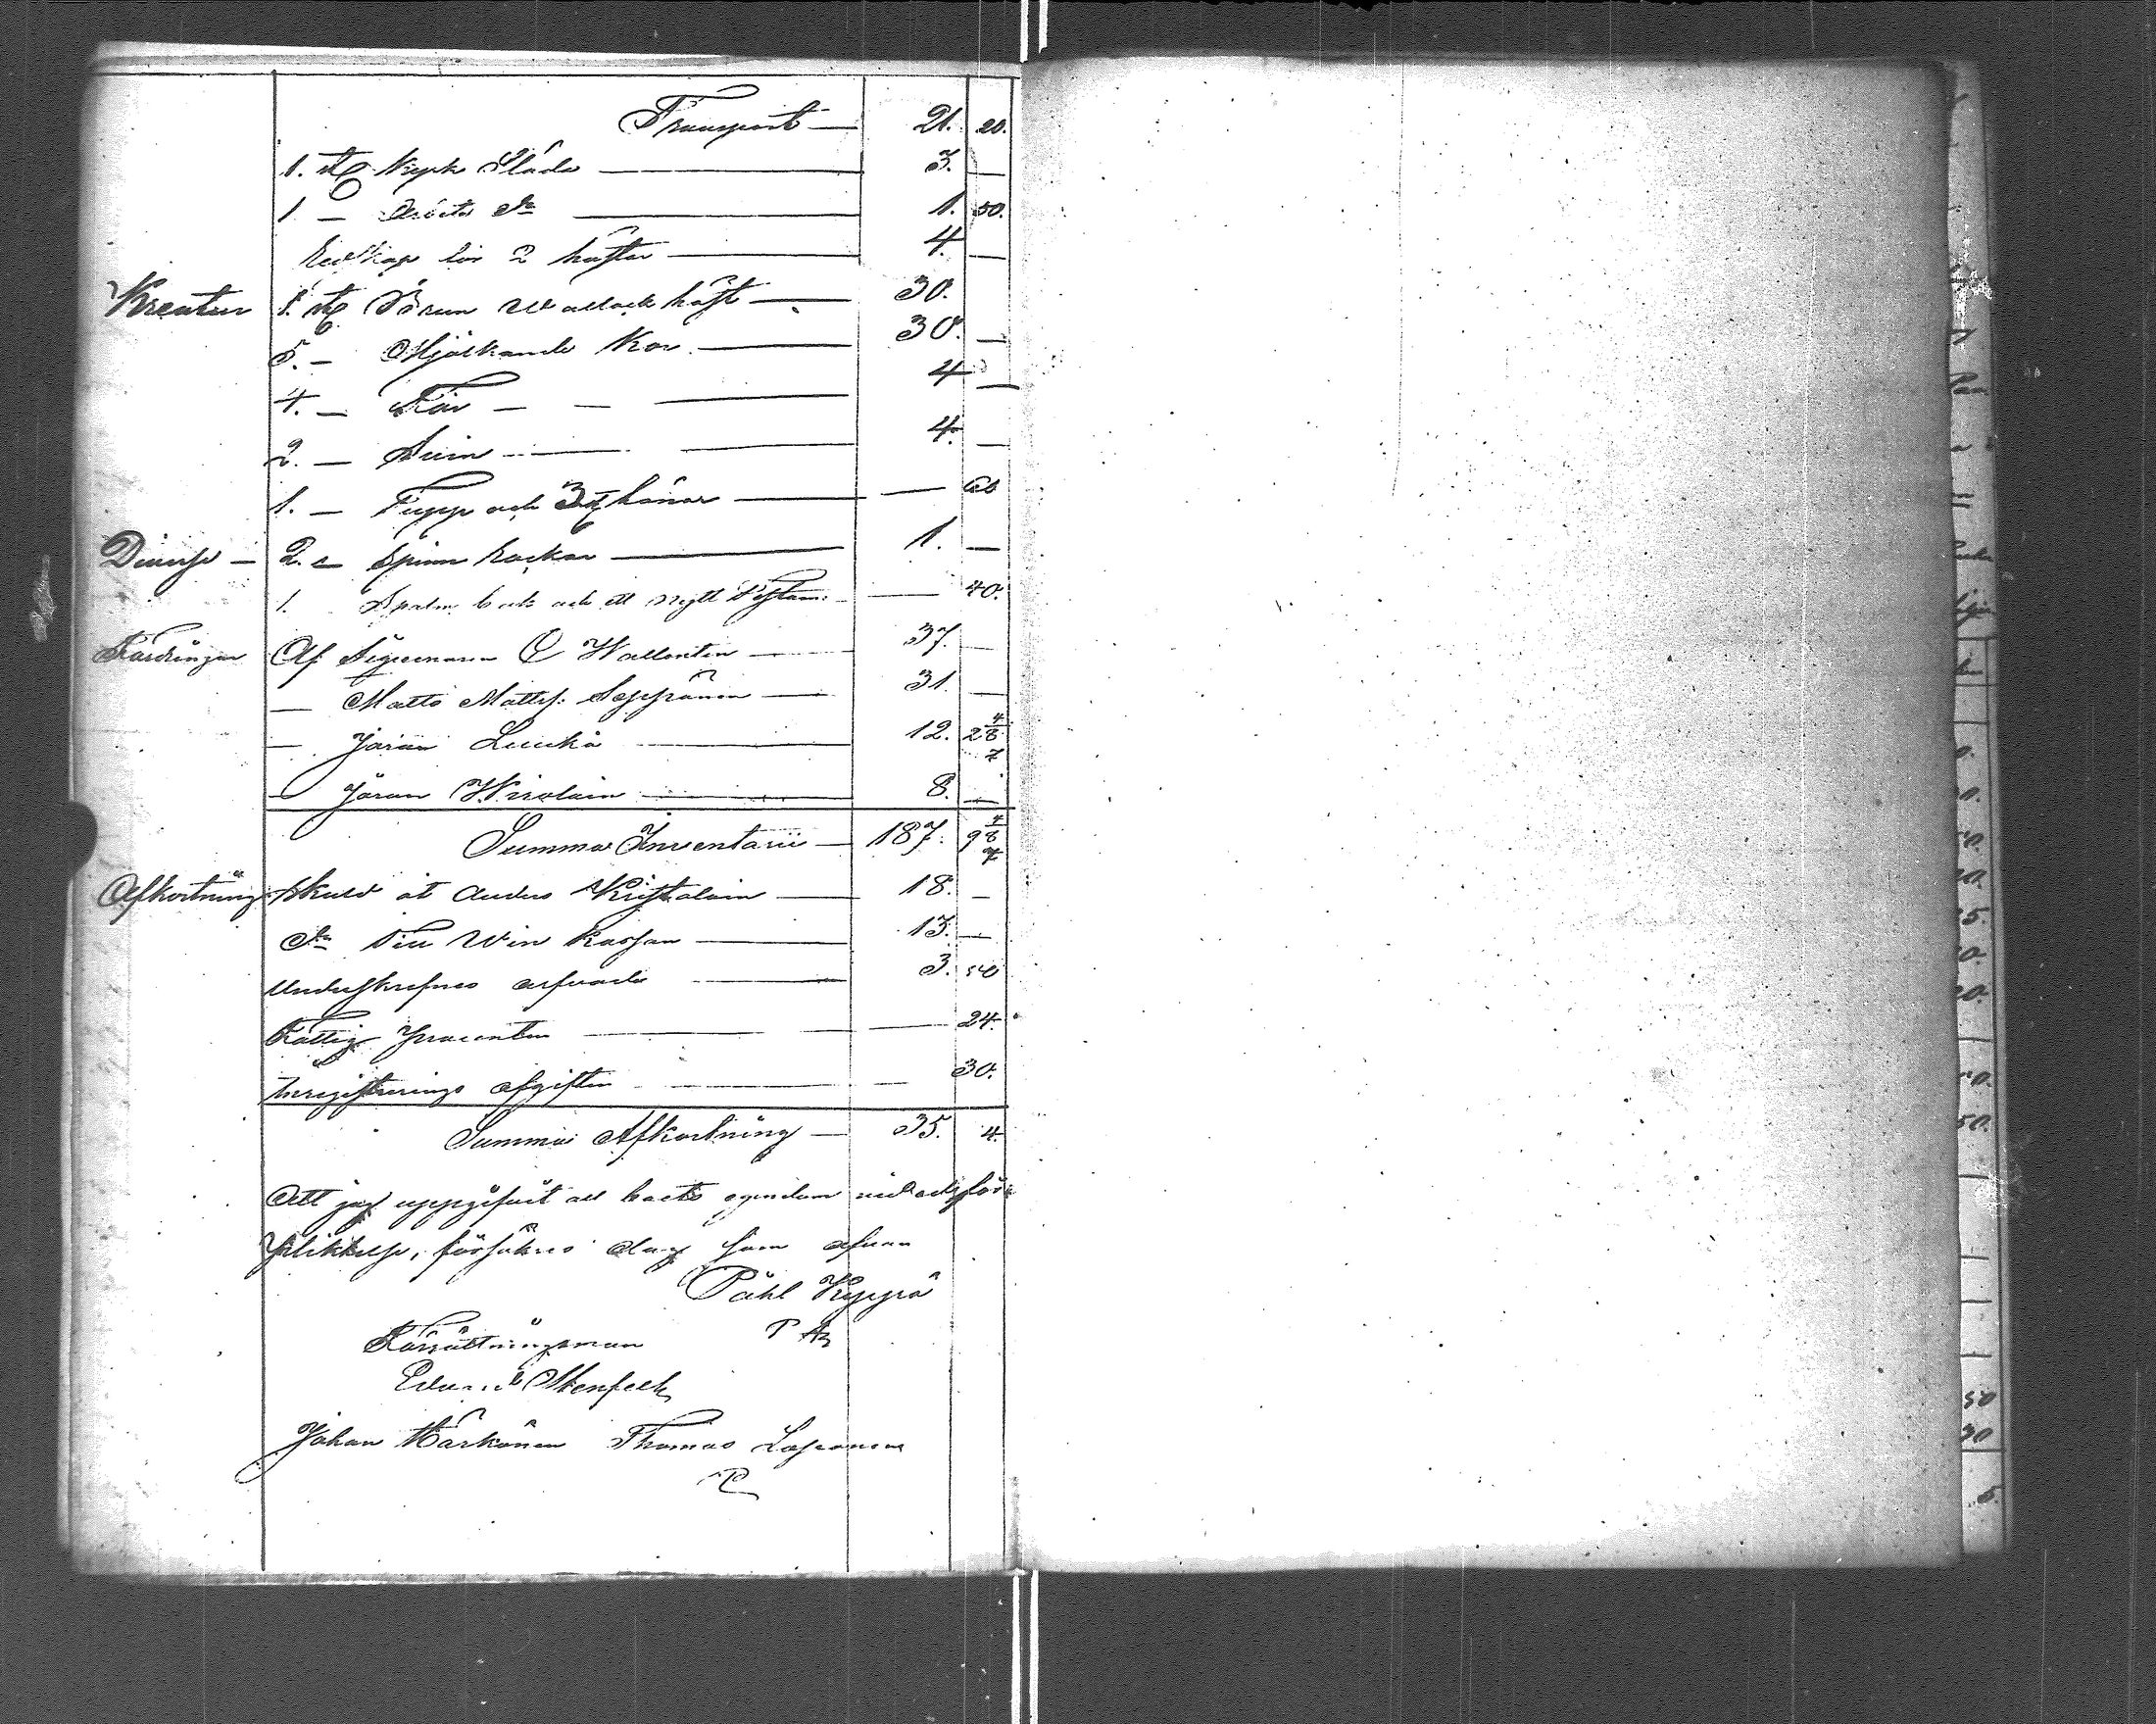 Transport — 21. 20.
1. st. Kyrk Släda — 3. —
1 — Arbets do — 1. 50.
Redskap för 2 hästar — 4. —
Kreatur 1. st. Brun Wallack häst — 30.
5. — Mjölkande Kor — 30. —
4. — Får — — 4 —
2. — Svin — 4. —
1. — Tupp och 3 st hönor — — 60
Diverse — 2. — Spinn Rockar — 1. —
1. Psalm bok och ett nytt Testam: — 40.
Fordringar Af Wallentin — 37. —
— Matts Matts: Seppänen — 31. —
— Jöran Luukka — 12. 28 4/7
— Jöran Wirolain — 8. —
Summa Inventarii — 187. 98 4/7
Afkortning Skuld åt Anders — 18. —
do till Kassan — 13. —
Underskrefnes arfvode — 3. 50
Fattig Procenten — — 24.
Inregistrerings afgiften — — 30.
Summa Afkortning — 35. 4.
Att jag uppgifvit all boets egendom
, försäkras dag som ofvan
Påhl
Förrättningsman
Stenfelt
Johan Härkönen Thomas